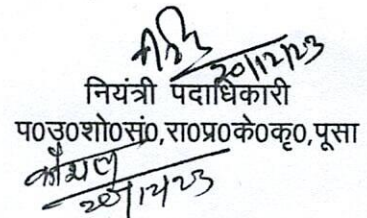 20/12/23
नियंत्री पदाधिकारी
प0उ0शो0सं0,रा0प्र0के0कृ0,पूसा
कौशल
20/12/23